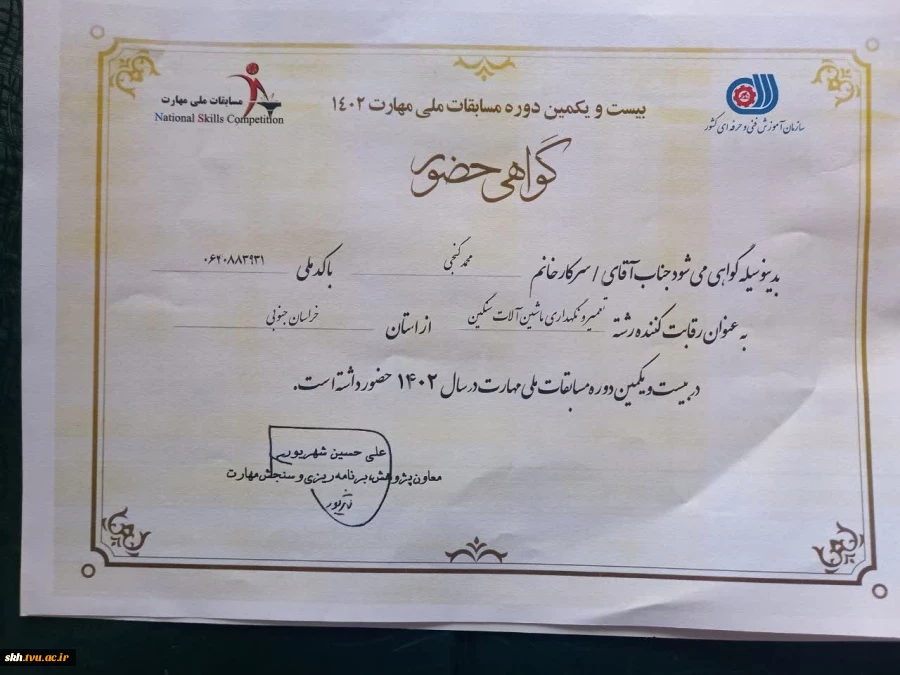 بیست و یکمین دوره مسابقات ملی مهارت ۱۴۰۲
سازمان آموزش فنی و حرفه ای کشور
مسابقات ملی مهارت
National Skills Competition
گواهی حضور
بدینوسیله گواهی می شود جناب آقای / سرکار خانم محمد گنجی با کد ملی ۰۶۴۰۸۸۳۹۳۱
به عنوان رقابت کننده رشته تعمیر و نگهداری ماشین آلات سنگین از استان خراسان جنوبی
در بیست و یکمین دوره مسابقات ملی مهارت در سال ۱۴۰۲ حضور داشته است.
علی حسین شهریور
معاون پژوهش، برنامه ریزی و سنجش مهارت
skh.tvu.ac.ir